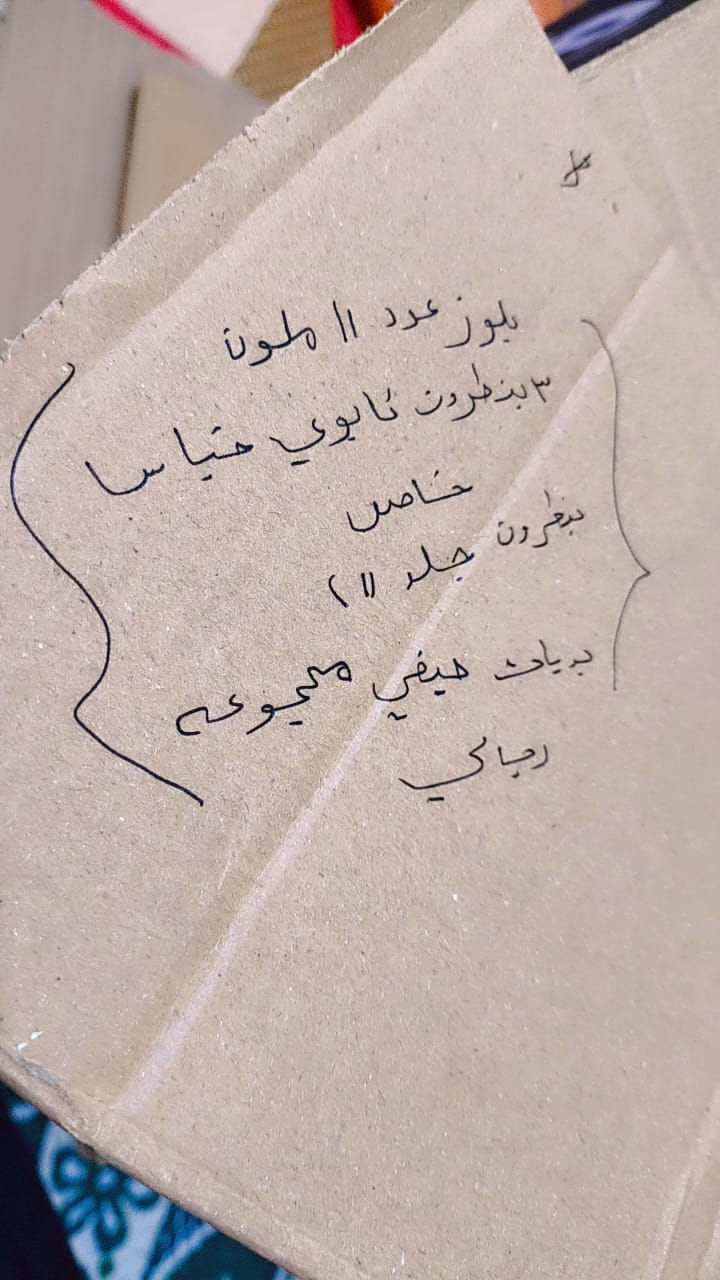 بلوز عدد 11 ملون
٣ بنطرون كابوي حتياسا
خاص
بنطرون جلد (11
بديات صيفي مجموعه
رجالي